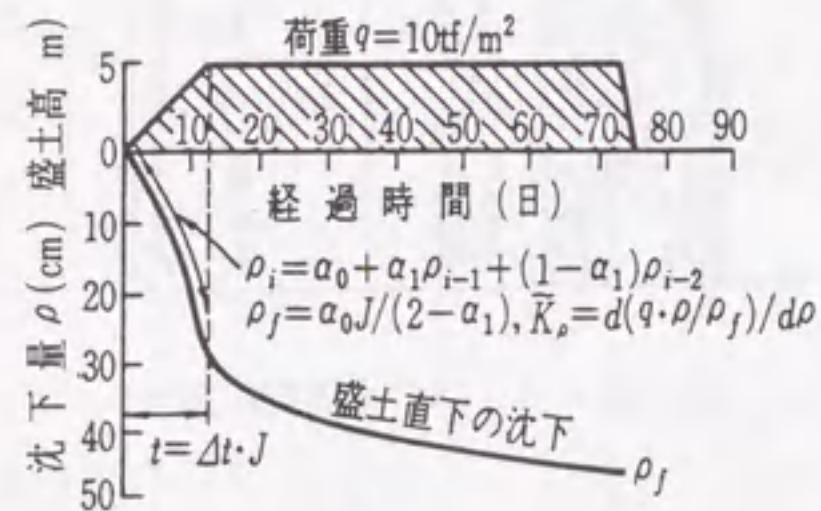 荷重q=10tf/m²
盛土高 m)
5
0
10 20 30 40 50 60 70 80 90
経過時間(日)
沈下量 ρ(cm)
10
20
30
40
50
ρᵢ=α₀+α₁ρᵢ₋₁+(1-α₁)ρᵢ₋₂
ρf=α₀J/(2-α₁), K̃ρ=d(q·ρ/ρf)/dρ
盛土直下の沈下
t=Δt·J
ρf